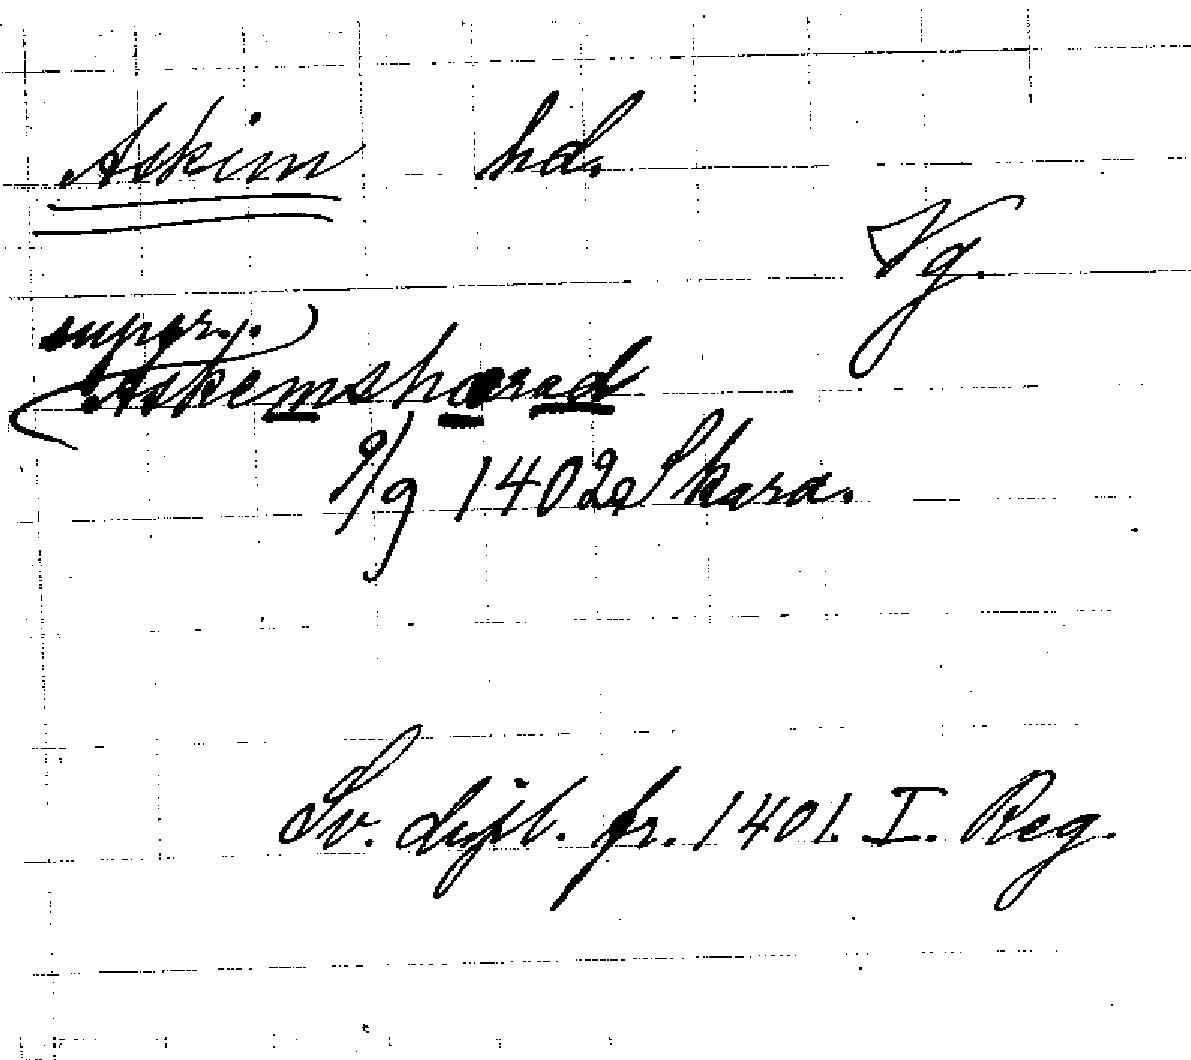 Askim hd.
Vg.
supgr.
Askemshærad
9/9 1402 Skara.
Sv. dipl. fr. 1401. I. Reg.